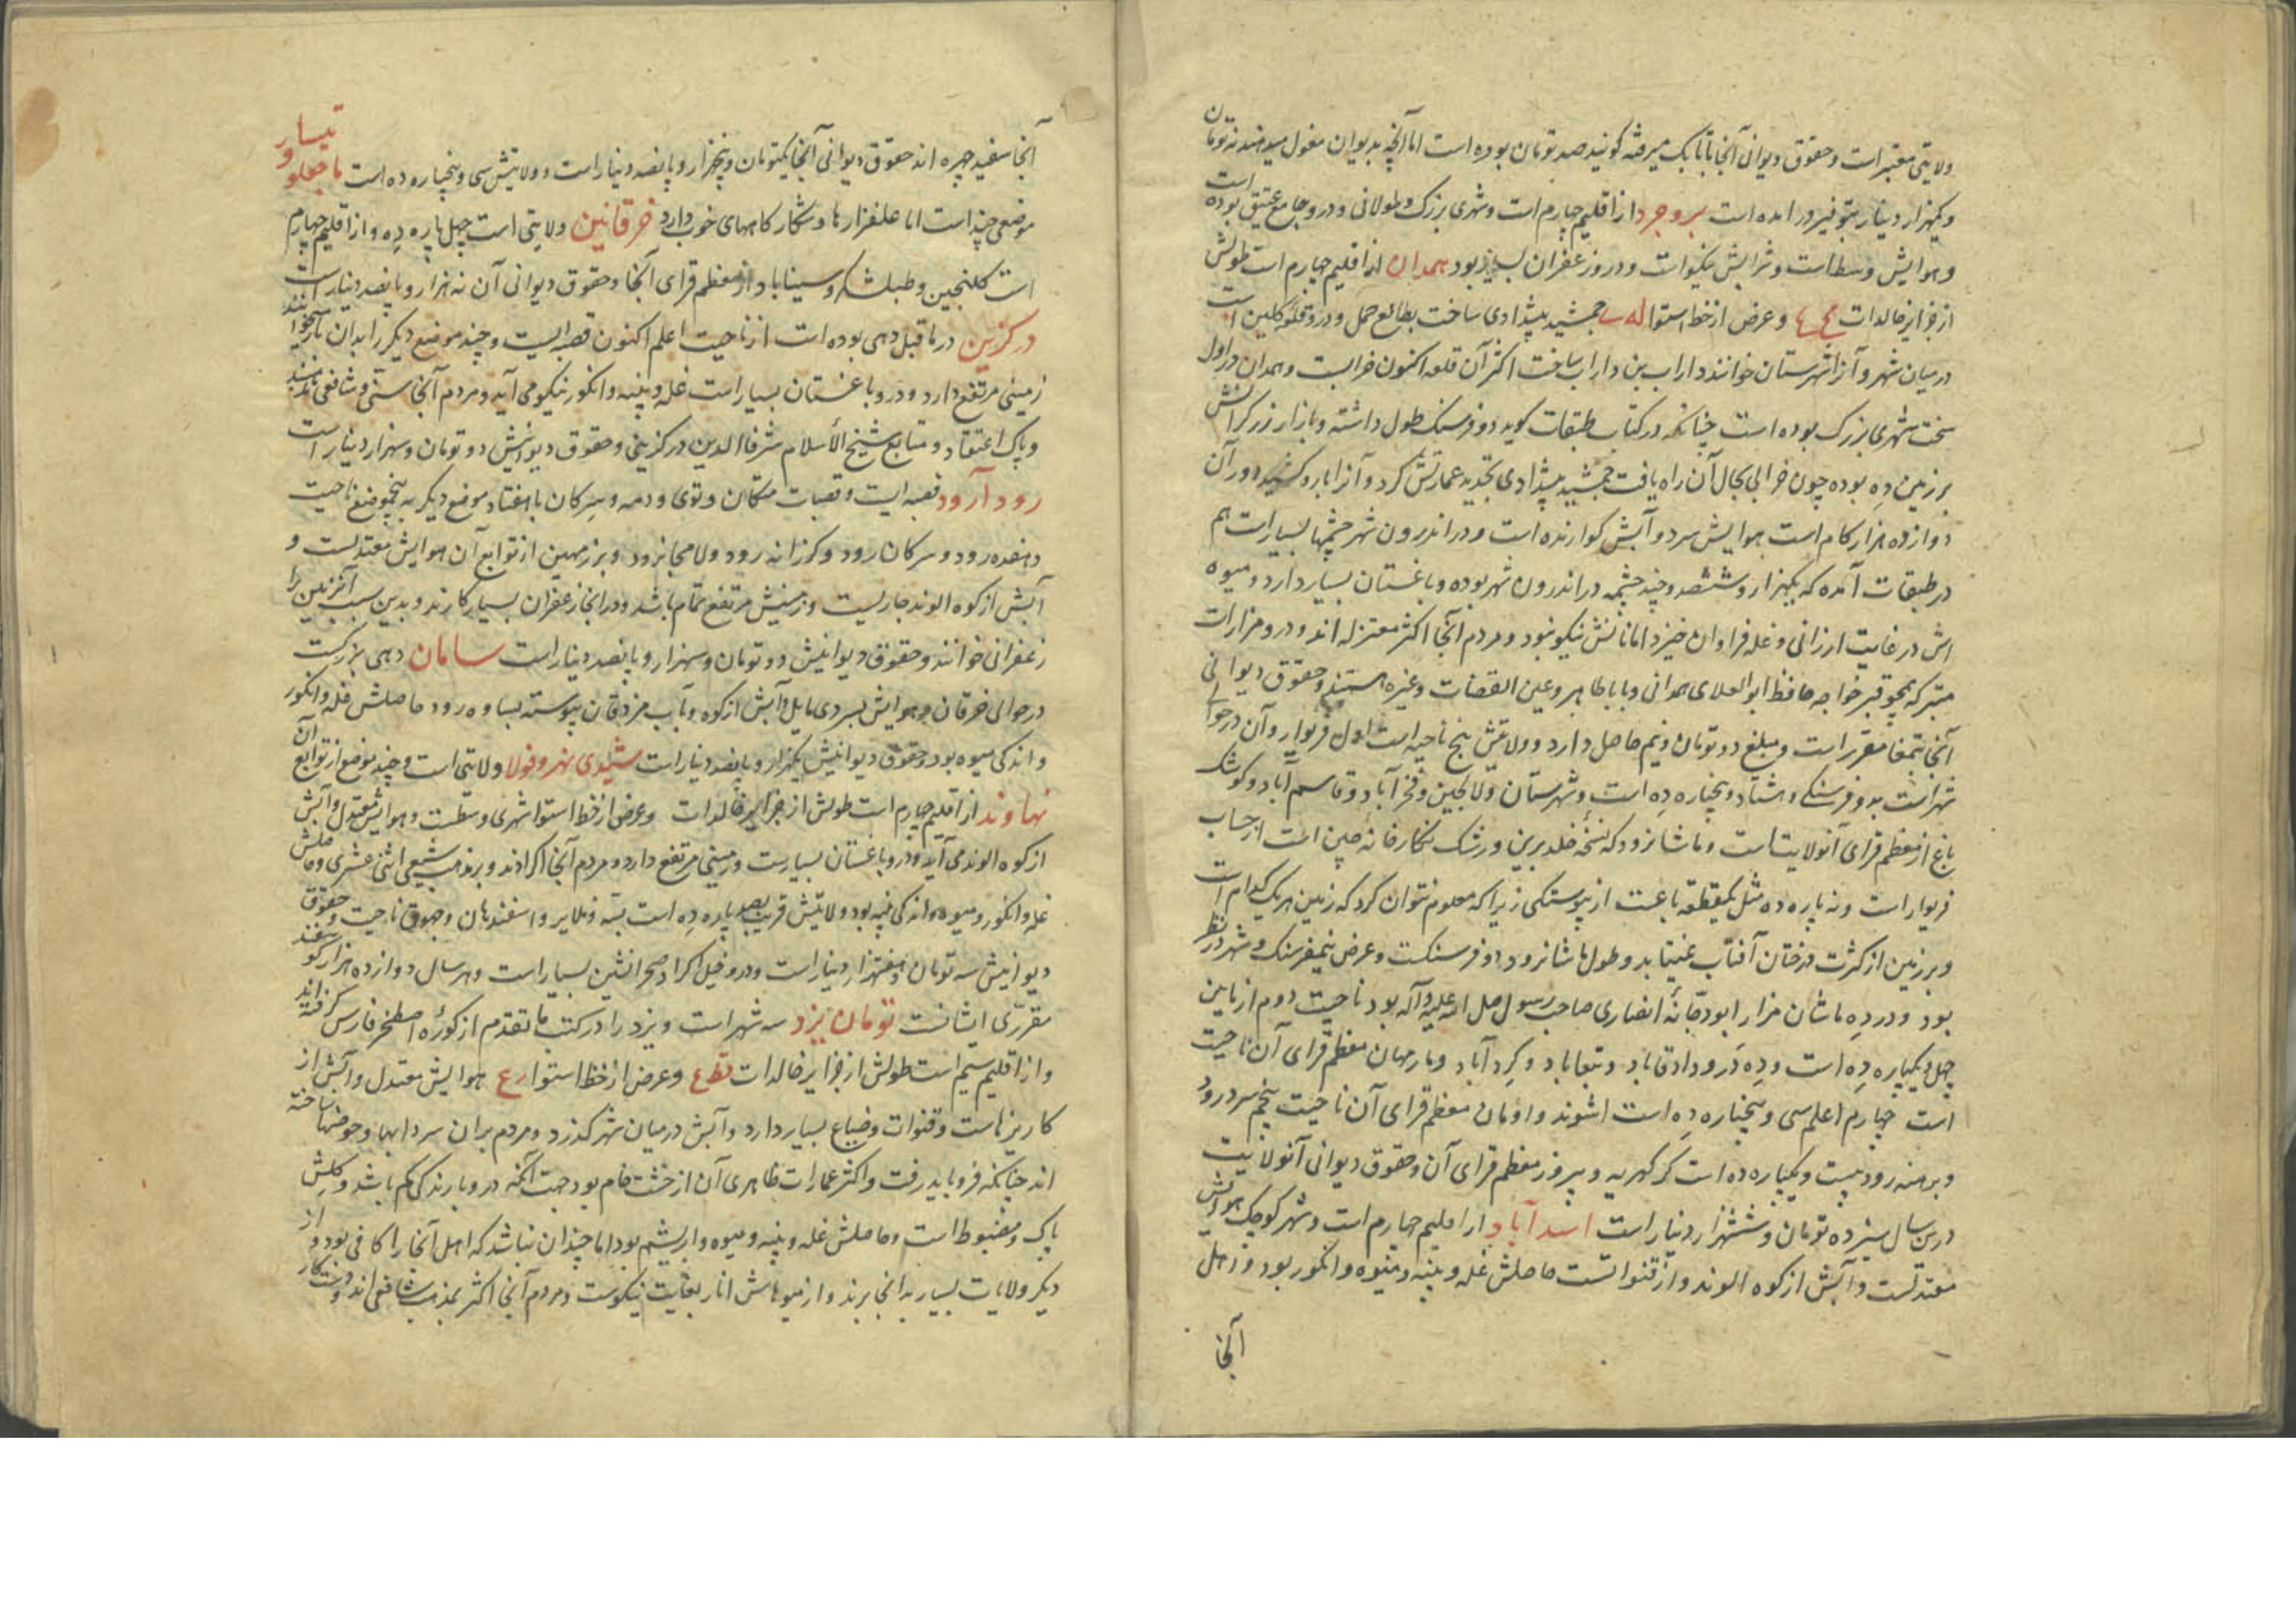 ولایتی معتبر است و حقوق دیوانی آنجا باتابک میرفته کویند صد تومان بوده است اما آنچه بدیوان مغول میدهند نه تومان
و یکهزار دینار بتوفیر در آمده است بروجرد از اقلیم چهارم است و شهری بزرک و طولانی و درو جامع عتیق بوده است
و هوایش وسط است و شرابش نیکو است و درو زعفران بسیار بود همدان از اقلیم چهارم است طولش
از جزایر خالدات و عرض از خط استوا جمشید پیشدادی ساخت بطالع حمل و درو قلعه کلین است
در میان شهر و آنرا شهرستان خوانند داراب بن داراب ساخت اکثر آن قلعه اکنون خرابست و همدان در اول
سخت شهری بزرک بوده است چنانکه در کتاب طبقات کوید دو فرسنک طول داشته و بازار زرکرانش
بر زمین دِه بوده چون خرابی بحال آن راه یافت جمشید پیشدادی تجدید عمارتش کرد و آنرا بارو کشید دور آن
دوازده هزار کام است هوایش سرد و آبش کوارنده است و در اندرون شهر چشمها بسیار است هم
در طبقات آمده که یکهزار و ششصد و چند چشمه در اندرون شهر بوده و باغستان بسیار دارد و میوه
اش در غایت ارزانی و غله فراوان خیزد اما نانش نیکو نبود و مردم آنجا اکثر معتزله اند و درو مزارات
متبرکه همچو قبر خواجه حافظ ابو العلای همدانی و بابا طاهر و عین القضات و غیره هستند و حقوق دیوانی
آنجا بتمغا مقرر است و مبلغ دو تومان و نیم حاصل دارد و ولایتش پنج ناحیه است اول فریوار و آن در حوالی
شهر است بدو فرسنکی و هشتاد و پنجپاره ده است و شهرستان و لالجین و فخرآباد و قاسم آباد و کوشک
باغ از معظم قرای آنولایتست و ماشانرود که نسخه خلد برین و رشک نکارخانه چین است از حساب
فریوار است و نه پاره ده مثل یکقطعه باغست از پیوستکی زیرا که معلوم نتوان کرد که زمین هر یک کدام است
و بر زمین از کثرت درختان آفتاب نمیتابد و طول ماشانرود دو فرسنکست و عرض نیمفرسنک و شهر در نظر
بود و در ده ماشان مزار ابودجانهٔ انصاری صاحب رسول صلی الله علیه و آله بود ناحیت دوم ازناین
چهل و یکپاره دِه است و دِه درود اقاباد و کرد آباد و مارمهان معظم قرای آن ناحیت
است چهارم اعلم سی و پنجپاره دِه است اشوند و اومان معظم قرای آن ناحیت پنجم سردرود
و برهنه رود بیست و یکپاره ده است کرکهریه و پیروز معظم قرای آن و حقوق دیوانی آنولایت
درین سال سیزده تومان و ششهزار دینار است اسدآباد از اقلیم چهارم است و شهر کوچک هوایش
معتدلست و آبش از کوه الوند و از قنواتست حاصلش غله و پنبه و میوه و انکور بود و اهل
آنجا
آنجا سفید چهره اند حقوق دیوانی آنجا یکتومان و پنجهزار و پانصد دینار است و ولایتش سی و پنجپاره ده است ماجعلو و تیسار
موضعی چند است اما علفزارها و شکارکاههای خوب دارد خرقانین ولایتی است چهل پاره دِه و از اقلیم چهارم
است کلنجین و طبلشکر و سیناباد از معظم قرای آنجا و حقوق دیوانی آن نه هزار و پانصد دینار است
درکزین در ما قبل دهی بوده است از ناحیت اعلم اکنون قصبه ایست و چند موضع دیکر را بدان باز خوانند
زمینی مرتفع دارد و درو باغستان بسیار است غله و پنبه و انکور نیکو می آید و مردم آنجا سنی و شافعی مذهبند
و پاک اعتقاد و متابع شیخ الأسلام شرفا الدین درکزینی و حقوق دیوانیش دو تومان و سهزار دینار است
رودآرود قصبه ایست و قصبات منکان و توی و دمه و سرکان با هفتاد موضع دیکر به پنجموضع ناحیت
دهنده رود و سرکان رود و کرزانه رود و لامجانرود و برزمهین از توابع آن هوایش معتدلست و
آبش از کوه الوند جاریست و زمینش مرتفع تمام باشد و در انجا زعفران بسیار کارند و بدین سبب آنزمین را
زعفرانی خوانند و حقوق دیوانیش دو تومان و سهزار و پانصد دینار است سامان دهی بزرکست
در حوالی خرقان و هوایش بسردی مایل و آبش از کوه و بآب مزدقان پیوسته بساوه رود حاصلش غله و انکور
و اندکی میوه بود و حقوق دیوانیش یکهزار و پانصد دینار است شبدی نهر و فولا ولایتی است و چند موضع از توابع آن
نهاوند از اقلیم چهارم است طولش از جزایر خالدات و عرض از خط استوا شهری وسطست و هوایش معتدل و آبش
از کوه الوند می آید و درو باغستان بسیارست و زمینی مرتفع دارد و مردم آنجا اکرادند و بر مذهب شیعی اثنی عشری و حاصلش
غله و انکور و میوه و اندکی پنبه بود و ولایتش قریب بصد پاره دِه است بسه و ملایر و اسفندهان و جهوق ناحیت و حقوق
دیوانیش سه تومان و هفتهزار دینار است و درو خیل اکراد صحرا نشین بسیار است و هر سال دوازده هزار کوسفند
مقرری ایشانست تومان یزد سه شهر است و یزد را در کتب ما تقدم از کورهٔ اصطخر فارس کرفته اند
و از اقلیم سیم است طولش از جزایر خالدات فطع و عرض از خط استوا رع هوایش معتدل و آبش از
کاریزهاست و قنوات و ضیاع بسیار دارد و آبش در میان شهر کذرد و مردم بران سردابها و حوضها ساخته
اند چنانکه فرو باید رفت و اکثر عمارات ظاهری آن از خشت خام بود جهت آنکه درو بارندکی کم باشد و کلش
پاک و مضبوط است و حاصلش غله و پنبه و میوه و ابریشم بود اما چندان نباشد که اهل آنجا را کافی بود و از
دیکر ولایات بسیار بدانجا برند و از میوهاش انار بغایت نیکوست و مردم آنجا اکثر بمذهب شافعی اند و دست کار